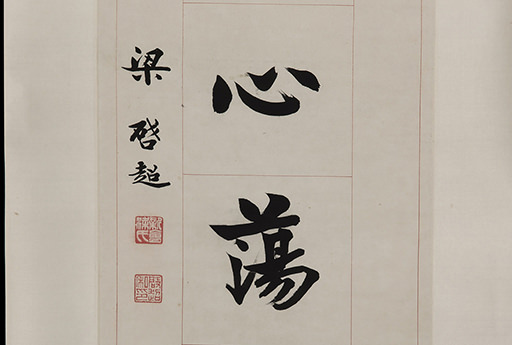 心蕩
梁啓超